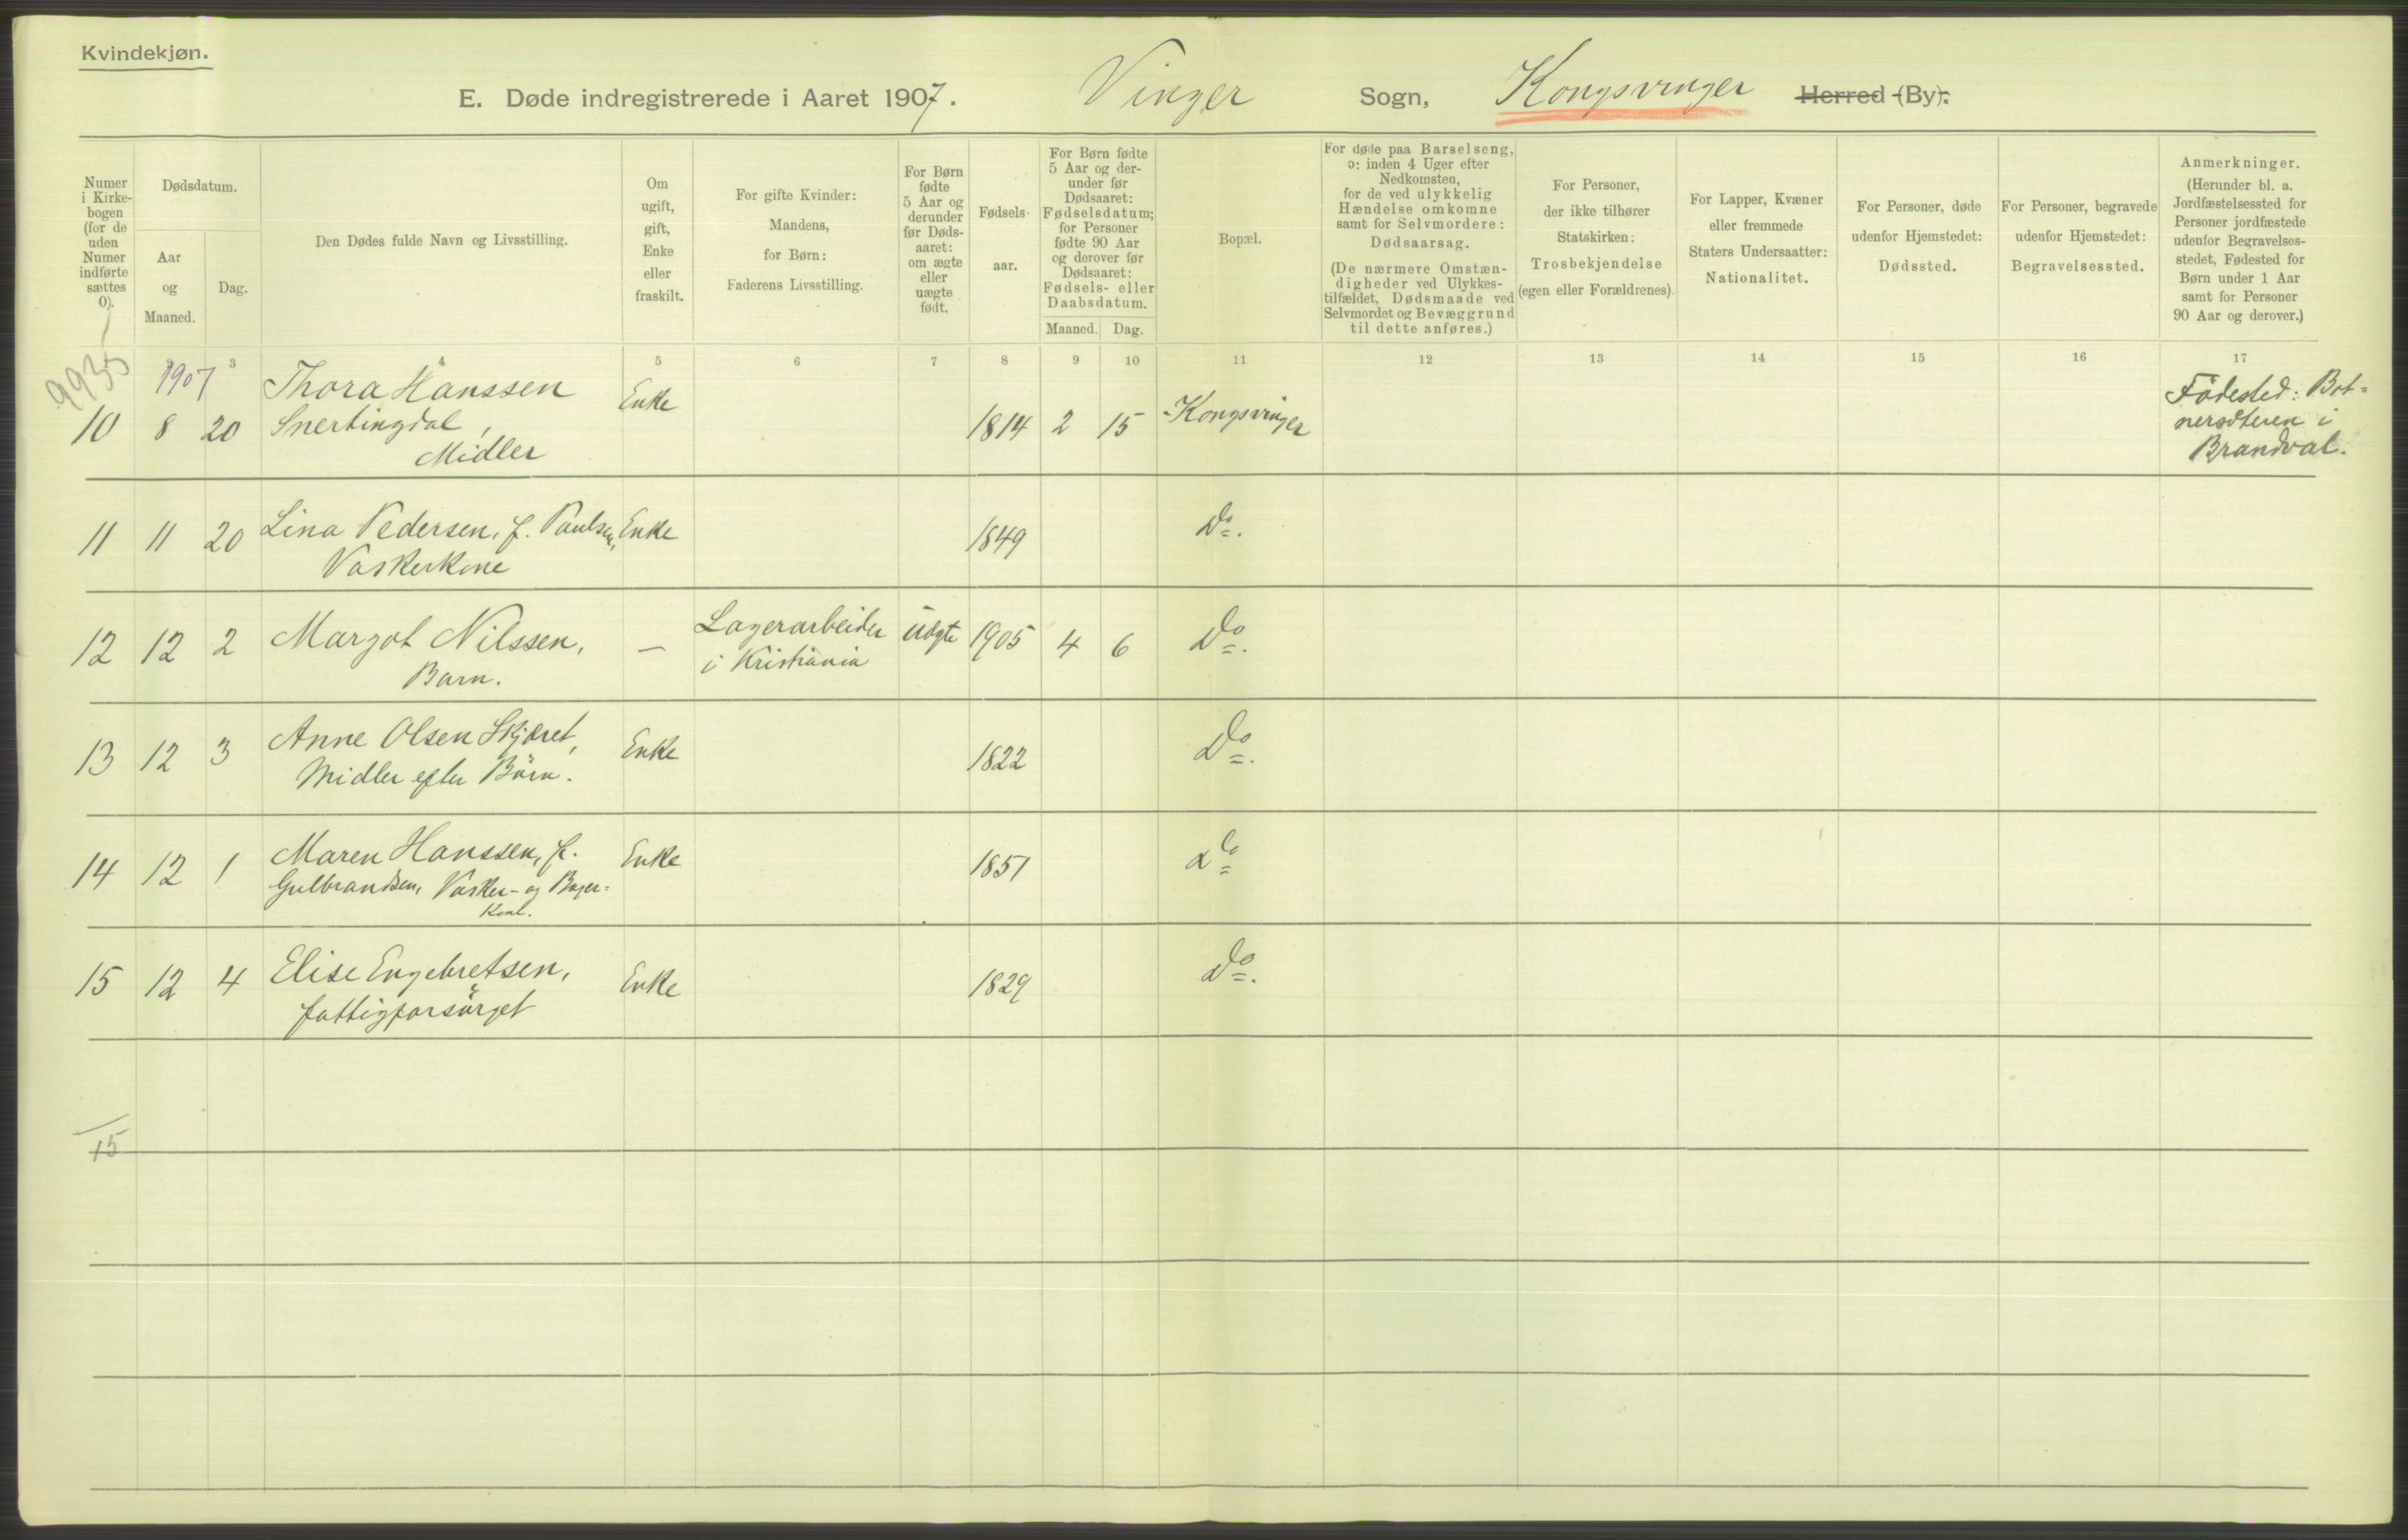 Kvindekjøn.
E. Døde indregistrerede i Aaret 1907. Vinger Sogn, Kongsvinger Herred (By).
Numer
i Kirke-
bogen
(for de
uden
Numer
indførte
sættes
0).
Dødsdatum.
Aar
og
Maaned.
Dag.
Den Dødes fulde Navn og Livsstilling.
Om
ugift,
gift,
Enke
eller
fraskilt.
For gifte Kvinder:
Mandens,
for Børn:
Faderens Livsstilling.
For Børn
fødte
5 Aar og
derunder
før Døds-
aaret:
om ægte
eller
uægte
født.
Fødsels-
aar.
For Børn fødte
5 Aar og der-
under før
Dødsaaret:
Fødselsdatum;
for Personer
fødte 90 Aar
og derover før
Dødsaaret:
Fødsels- eller
Daabsdatum.
Maaned. Dag.
Bopæl.
For døde paa Barselseng,
ɔ: inden 4 Uger efter
Nedkomsten,
for de ved ulykkelig
Hændelse omkomne
samt for Selvmordere:
Dødsaarsag.
(De nærmere Omstæn-
digheder ved Ulykkes-
tilfældet, Dødsmaade ved
Selvmordet og Bevæggrund
til dette anføres.)
For Personer,
der ikke tilhører
Statskirken:
Trosbekjendelse
(egen eller Forældrenes).
For Lapper, Kvæner
eller fremmede
Staters Undersaatter:
Nationalitet.
For Personer, døde
udenfor Hjemstedet:
Dødssted.
For Personer, begravede
udenfor Hjemstedet:
Begravelsessted.
Anmerkninger.
(Herunder bl. a.
Jordfæstelsessted for
Personer jordfæstede
udenfor Begravelses-
stedet, Fødested for
Børn under 1 Aar
samt for Personer
90 Aar og derover.)
3 4 5 6 7 8 9 10 11 12 13 14 15 16 17
9935
1907
10 8 20 Thora Hanssen Enke 1814 2 15 Kongsvinger Födested: Bot=
Snertingdal, nersæteren i
Midler Brandval.
11 11 20 Lina Pedersen, f. Paulsen, Enke 1849 Do.
Vaskerkone
12 12 2 Margot Nilssen, — Lagerarbeider uægte 1905 4 6 Do.
Barn. i Kristiania
13 12 3 Anne Olsen Skjæret, Enke 1822 Do.
Midler efter Börn.
14 12 1 Maren Hanssen, f. Enke 1851 do
Gulbrandsen, Vasker- og Bager=
kone.
15 12 4 Elise Engebretsen, Enke 1829 Do.
fattigforsörget
15